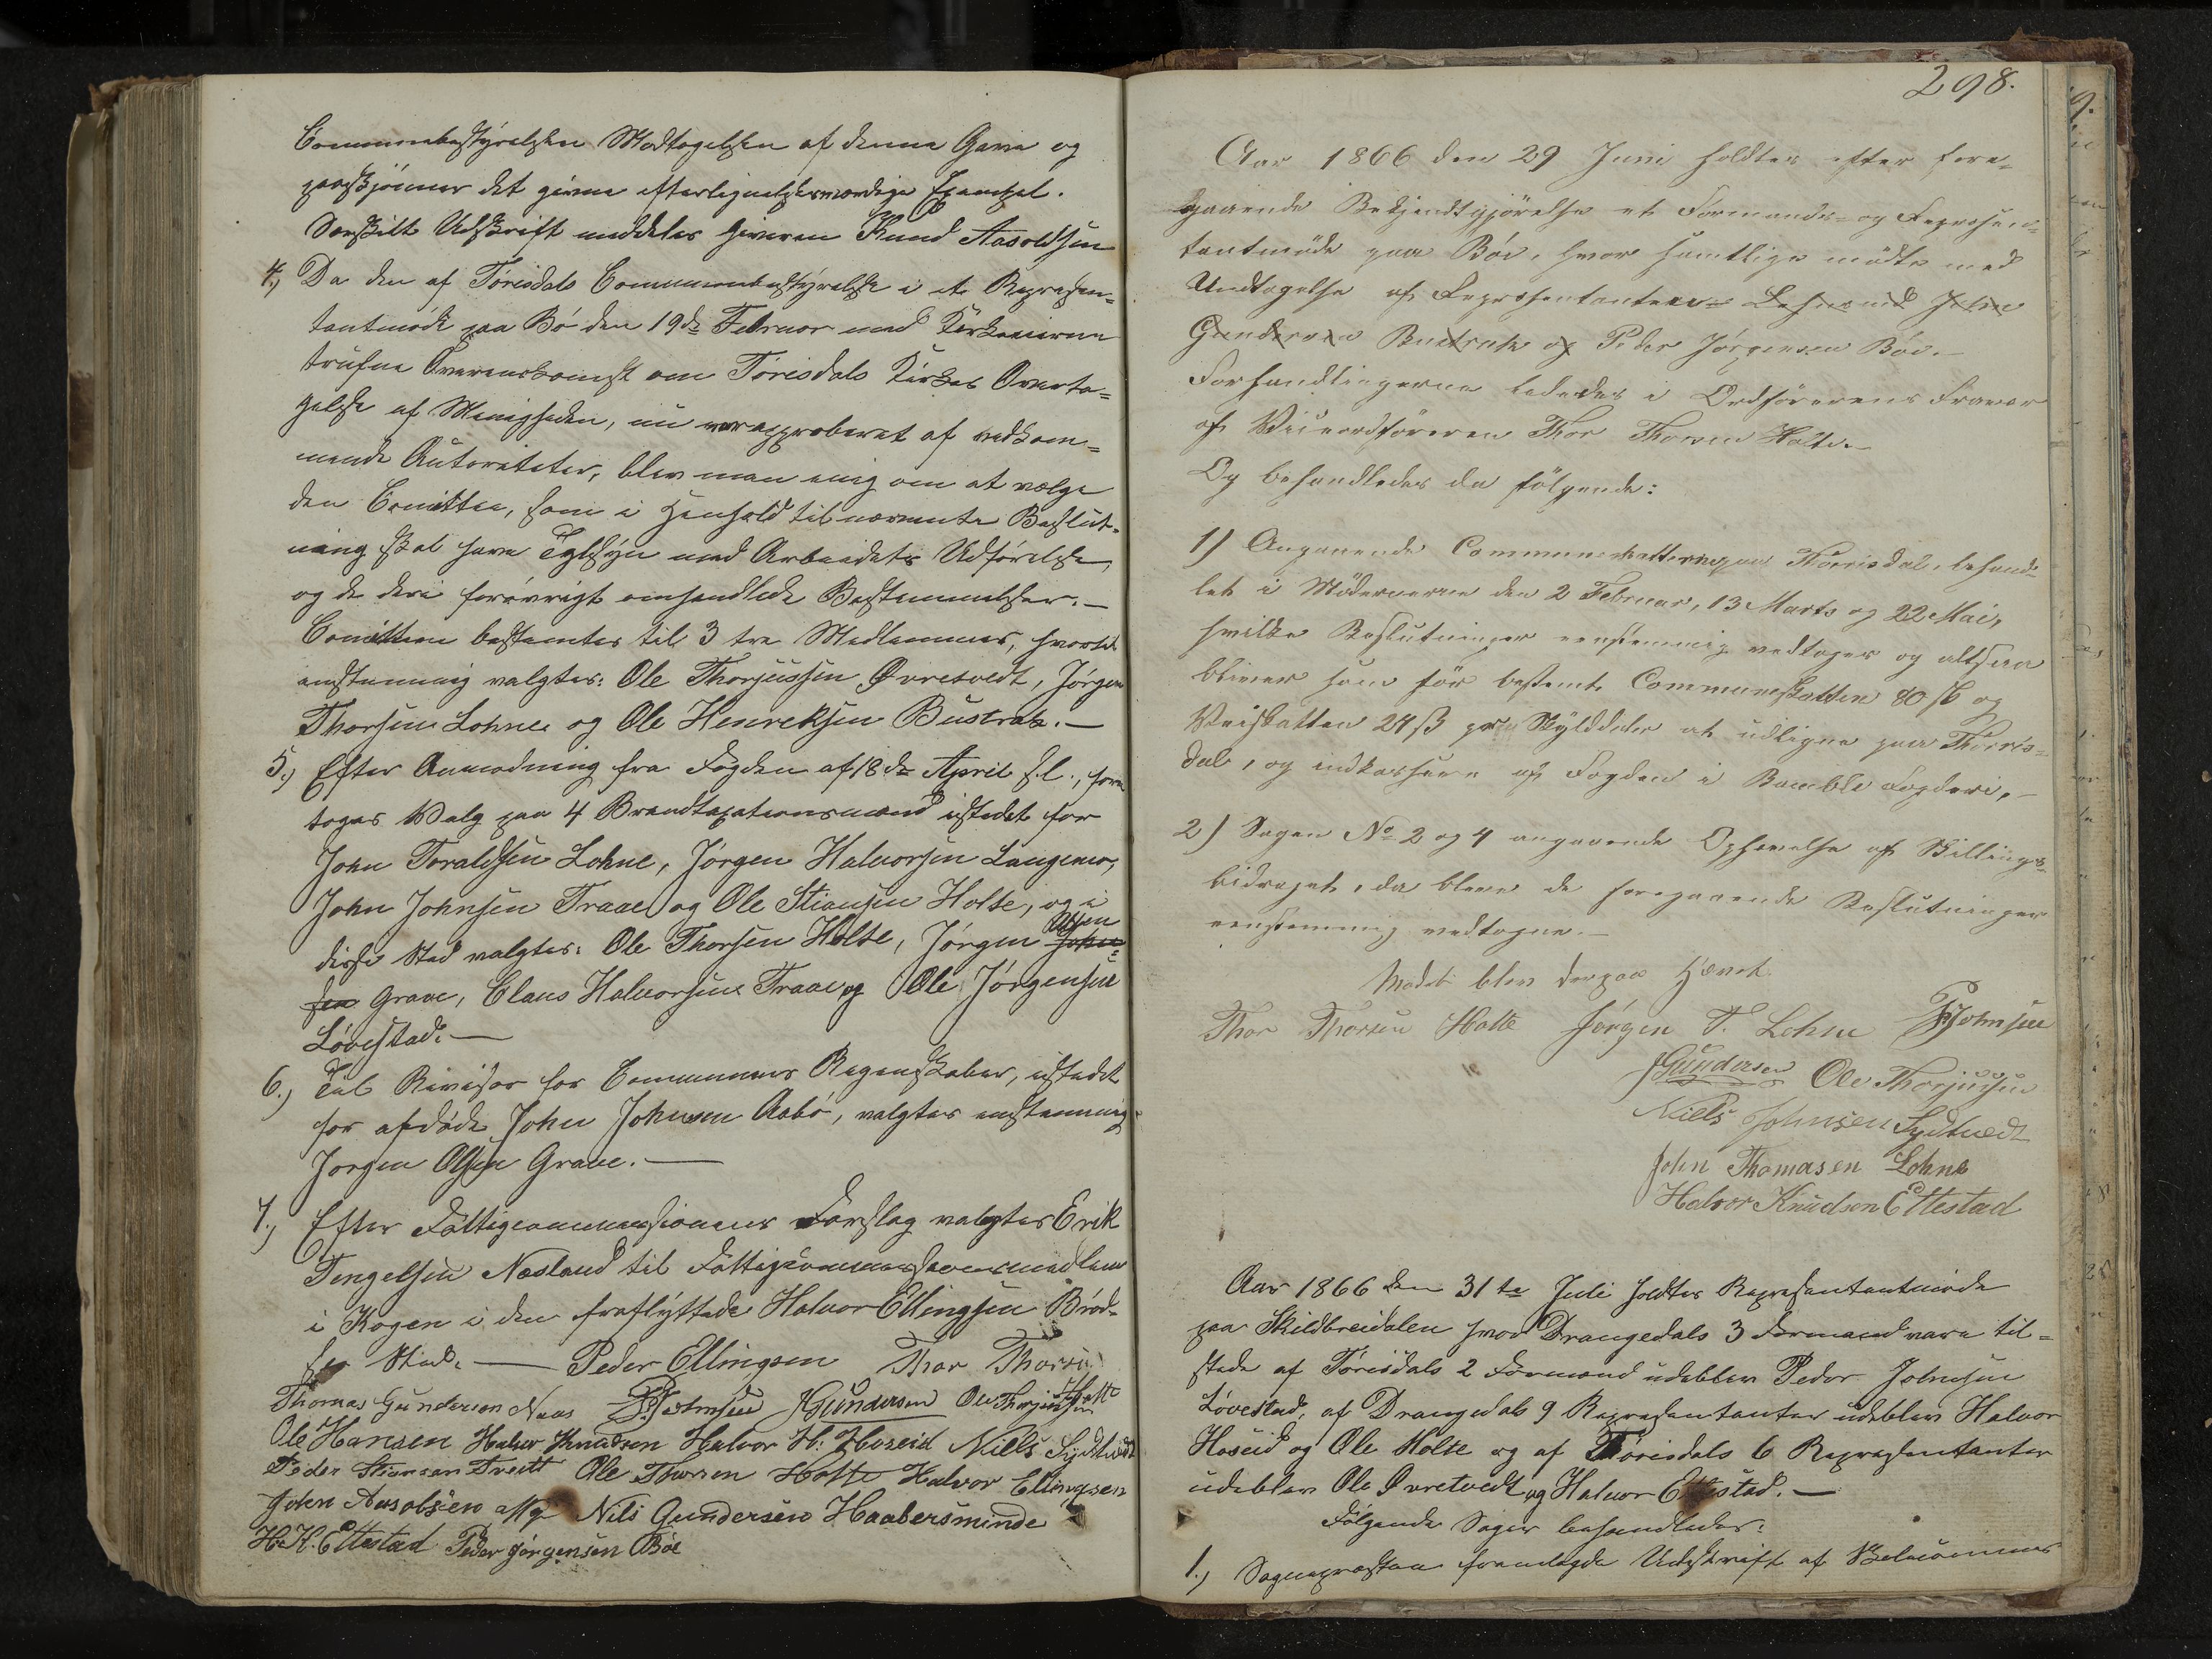 Communebestyrelsen Modtagelsen af denne Gave og
paaskjönner det givne efterlignelsesværdige Exempel.
Særskilt Udskrift meddeles Giveren Knud Aasoldsen
4.) Da den af Törisdals Communebestyrelse i et Represen=
tantmöde paa Bö den 19de Februar med Kirkeeierne
trufne Overenskomst om Törisdals Kirkes Overta=
gelse af Menigheden, nu var approberet af vedkom=
mende Autoriteter, blev man enig om at vælge
den Comittee, som i Henhold til nævnte Beslut=
ning skal have Tilsyn med Arbeidets Udförelse
og de deri forövrigt omhandlede Bestemmelser. —
Comitteen bestemtes til 3 tre Medlemmer, hvortil
enstemmig valgtes: Ole Thorjussen Øvretvedt, Jörgen
Thorsen Lohne og Ole Henreksen Bustrak. —
5.) Efter Anmodning fra Fogden af 18de April f.l., fore
toges Valg paa 4 Brandtaxationsmænd istedet for
John Toraldsen Lohne, Jörgen Halvorsen Langemo,
John Johnsen Traae og Ole Stiansen Holte, og i
disses Sted valgtes: Ole Thorsen Holte, Jörgen John= Olsen
sen Grave, Claus Halvorsen Traae og Ole Jörgensen
Lövestad. —
6.) Til Revisor for Communens Regnskaber, istedet
for afdöde John Johnsen Aabö, valgtes enstemmig
Jörgen Olsen Grave. —
7.) Efter Fattigcommissionens Forslag valgtes Erik
Tengelsen Næsland til Fattigcommissionsmedlem
i Kogen i den fraflyttede Halvor Ellingsen Bröd=
sös Sted. — Peder Ellingsen Thor Thorsen
Holte
Thomas Gundersen Naas P Johnsen J Gundersen Ole Thorjussen
Ole Hansen Halvor Knudsen Halvor H. Hoseid Niells Sydtvedt
Peder Stiansen Tveitt Ole Thorsen Holte Halvor Ellingsen
John Aasolsen Nils Gundersen Haabersminde
H. K. Ettestad Peder Jörgensen Böe
298.
Aar 1866 den 29 Juni holdtes efter fore=
gaaende Bekjendtgjörelse et Formands- og Repræsen=
tantmöde paa Böe, hvor samtlige mödte med
Undtagelse af Repræsentanterne John
Gundersen Bustrak og Peder Jörgensen Böe. —
Forhandlingerne lededes i Ordförerens Fravær
af Viceordföreren Thor Thorsen Holte. —
Og behandledes da fölgende:
1) Angaaende Communeskatten paa Thörrisdal, behand=
let i Möderne den 2 Februar, 13 Marts og 22 Mai,
hvilke Beslutninger eenstemmig vedtages og altsaa
bliver som för bestemt Communeskatten 80 ß og
Veiskatten 24 ß pr Skylddaler at udligne paa Thörris=
dal, og indkassere af Fogden i Bamble Fogderi. —
2) Sagen No 2 og 4 angaaende Ophævelse af Skillings=
bidraget, da bleve de foregaaende Beslutninger
eenstemmig vedtagne. —
Mödet blev derpaa hævet.
Thor Thorsen Holte Jörgen T. Lohne P Johnsen
J Gundersen Ole Thorjussen
Niells Johnsen Sydtvedt
John Thomasen Lohne
Halvor Knudsen Ettestad
Aar 1866 den 31te Juli holdtes Representantmöde
paa Skildbreidalen hvor Drangedals 3 Formænd vare til=
stede af Törisdals 2 Formænd udeblev Peder Johnsen
Lövestad, af Drangedals 9 Representanter udeblev Halvor
Hoseid og Ole Holte og af Törisdals 6 Representanter
udeblev Ole Øvretvedt og Halvor Ettestad. —
Fölgende Sager behandledes:
1.) Sognepræsten fremlagde Udskrift af